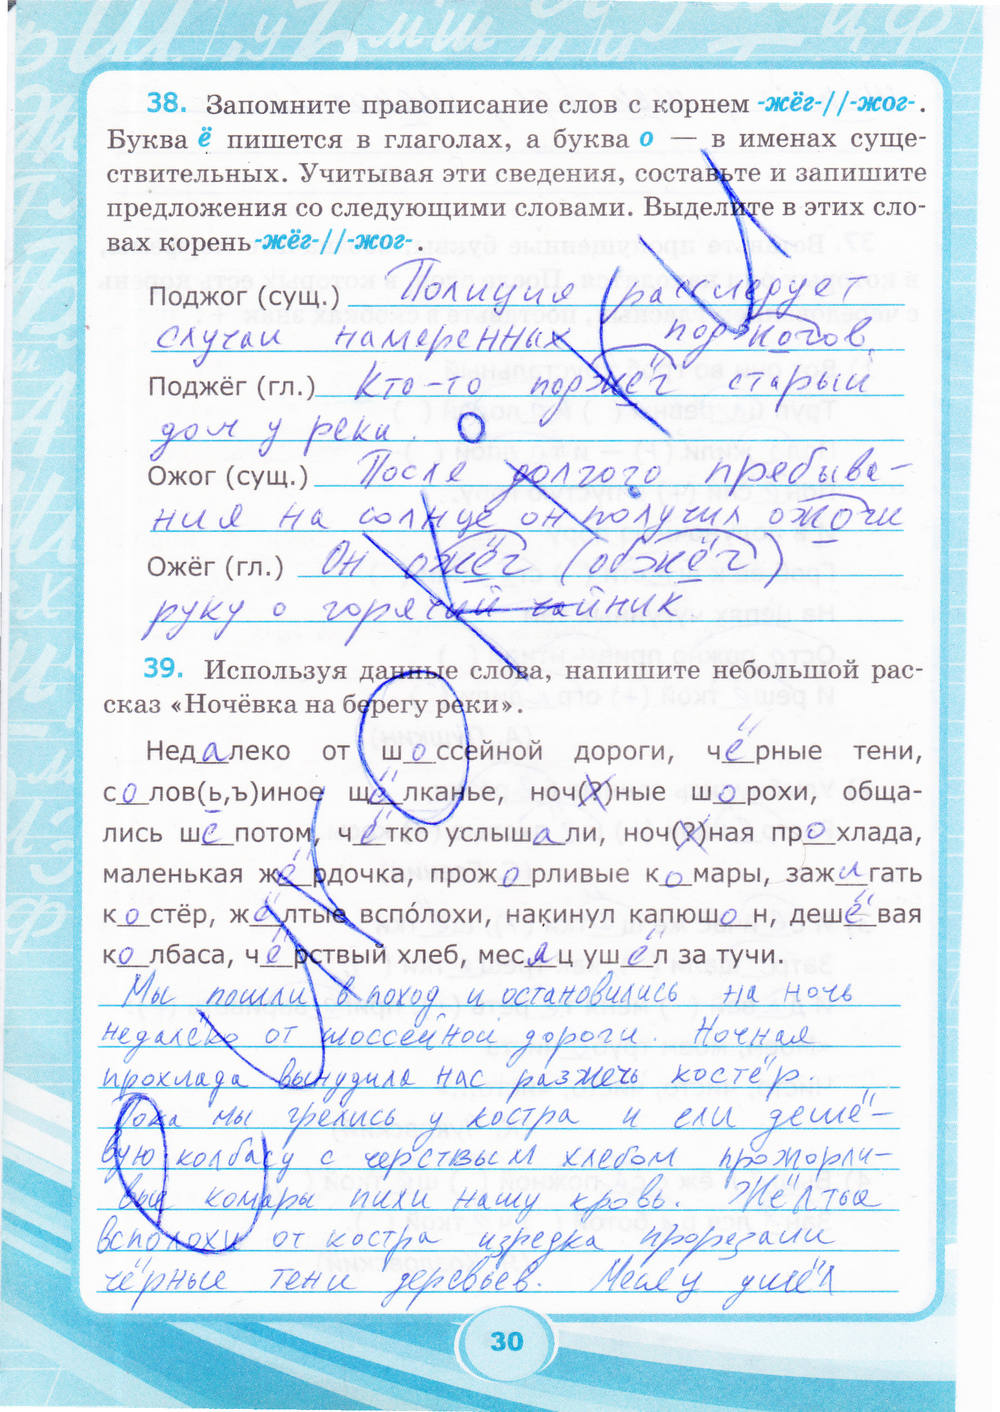 38. Запомните правописание слов с корнем -жёг-//-жог-.
Буква ё пишется в глаголах, а буква о — в именах суще-
ствительных. Учитывая эти сведения, составьте и запишите
предложения со следующими словами. Выделите в этих сло-
вах корень -жёг-//-жог-.
Поджог (сущ.) Полиция расследует
случаи намеренных поджогов.
Поджёг (гл.) Кто-то поджёг старый
дом у реки.
Ожог (сущ.) После долгого пребыва-
ния на солнце он получил ожоги
Ожёг (гл.) Он ожёг (обжёг)
руку о горячий чайник
39. Используя данные слова, напишите небольшой рас-
сказ «Ночёвка на берегу реки».
Недалеко от шоссейной дороги, чёрные тени,
солов(ь,ъ)иное щёлканье, ноч(?)ные шорохи, обща-
лись шёпотом, чётко услышали, ноч(?)ная прохлада,
маленькая жёрдочка, прожорливые комары, зажигать
костёр, жёлтые всполохи, накинул капюшон, дешёвая
колбаса, чёрствый хлеб, месяц ушёл за тучи.
Мы пошли в поход и остановились на ночь
недалеко от шоссейной дороги. Ночная
прохлада вынудила нас разжечь костёр
Пока мы грелись у костра и ели дешё-
вую колбасу с черствым хлебом прожорли-
вые комары пили нашу кровь. Жёлтые
всполохи от костра изредка прорезали
чёрные тени деревьев. Месяц ушёл
30